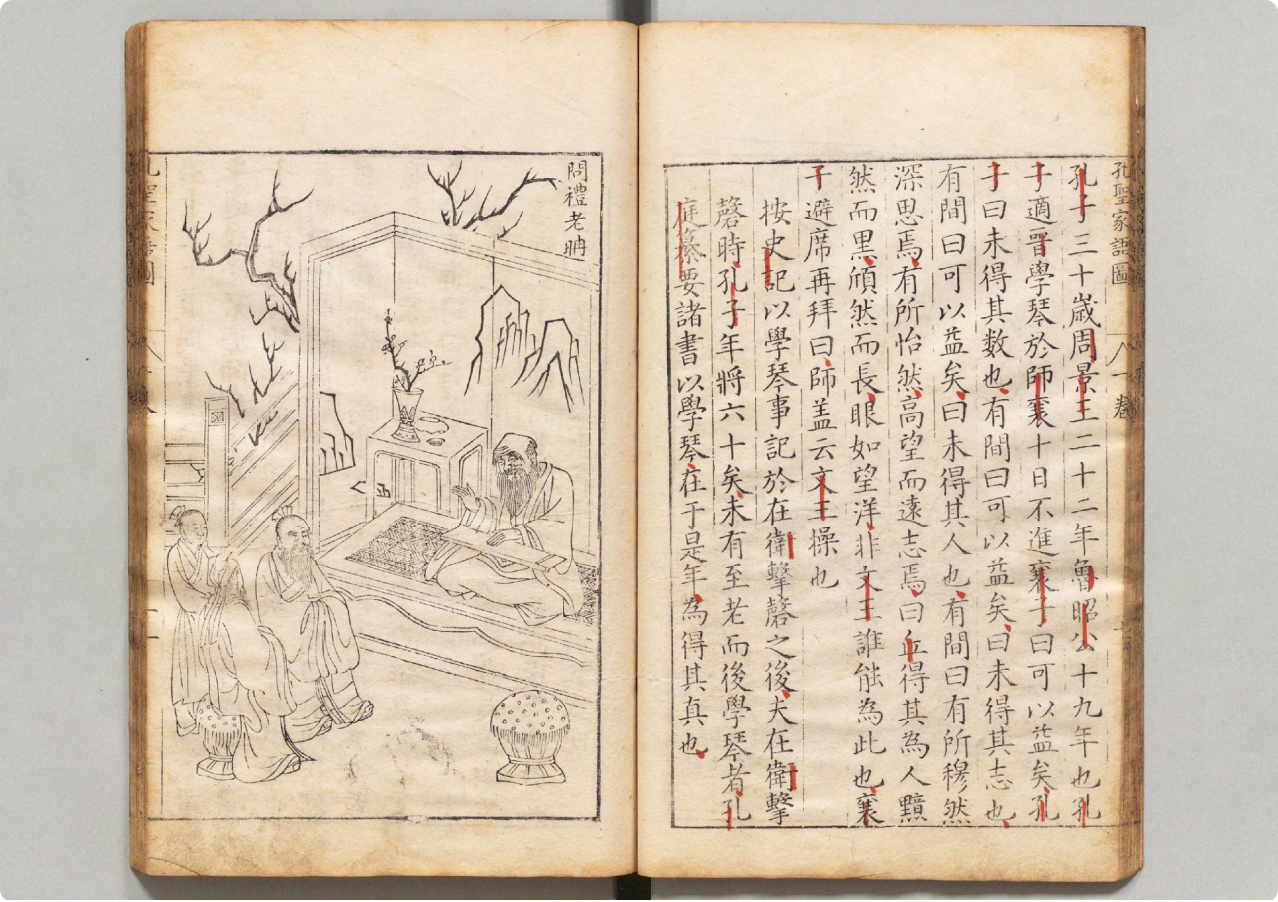 孔聖家語圖 八一卷
孔子三十歲周景王二十二年魯昭公十九年也孔
子適晉學琴於師襄十日不進襄子曰可以益矣孔
子曰未得其数也有間曰可以益矣曰未得其志也
有間曰可以益矣曰未得其人也有間曰有所穆然
深思焉有所怡然高望而遠志焉曰丘得其為人黯
然而黑頎然而長眼如望洋非文王誰能為此也襄
子避席再拜曰師盖云文王操也
按史記以學琴事記於在衛擊磬之後夫在衛擊
磬時孔子年將六十矣未有至老而後學琴者孔
庭纂要諸書以學琴在于是年為得其真也
問禮老聃